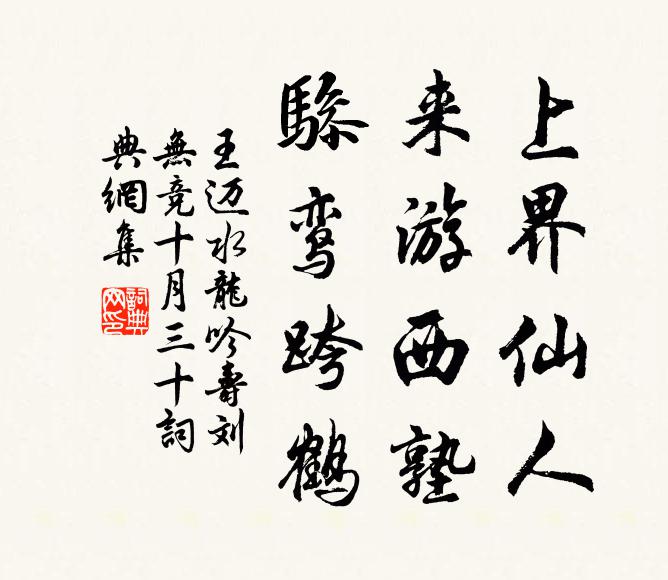 上界仙人
来游西塾
骖鸾跨鹤
王迈水龍吟壽刘
無竞十月三十詞
典網集
詞典
网印